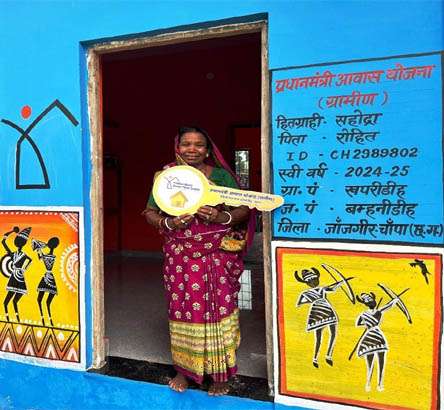 प्रधानमंत्री आवास योजना
(ग्रामीण)
हितग्राही - सहोद्रा
पिता - रोहित
ID - CH2989802
स्वी वर्ष - 2024-25
ग्रा. पं - खपरीडीह
ज. पं - बम्हनीडीह
जिला - जाँजगीर-चाँपा (छ.ग.)